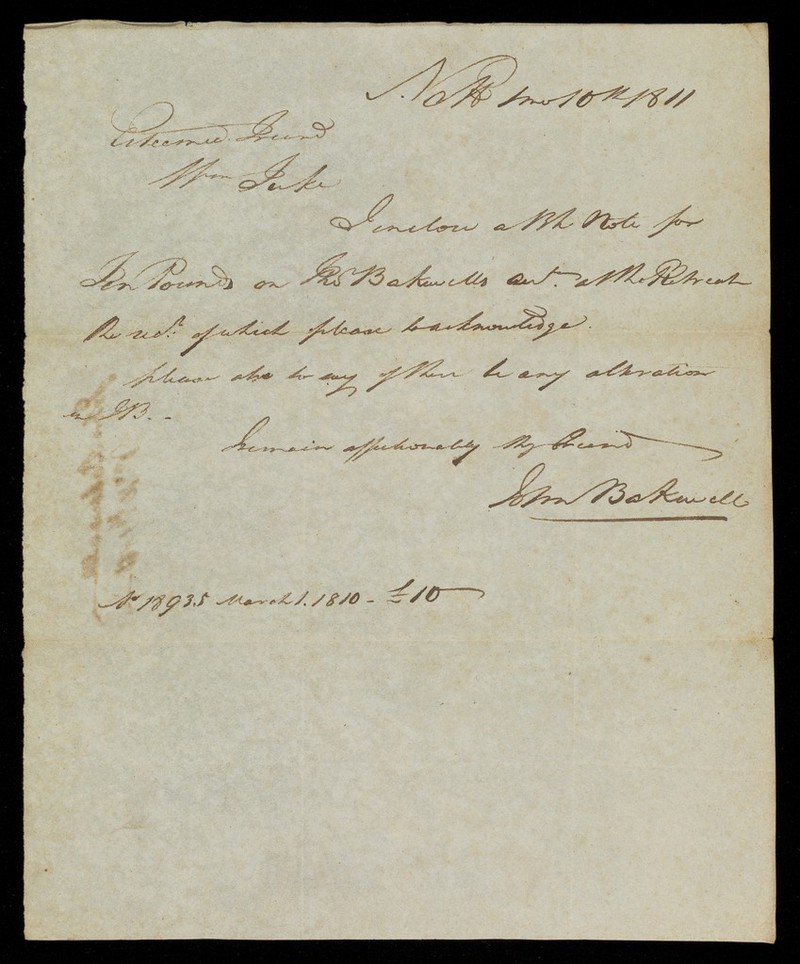 1mo 10th 1811
Esteemed Friend
Wm Tuke
I inclose a Bk Note for
Ten Pounds on Thos Bakewells act. at the Retreat
the rect. of which please to acknowledge.
please also to say if there be any alteration
in TB. -
I remain affectionately thy Friend
John Bakewell
No 18935 March 1. 1810 - £10